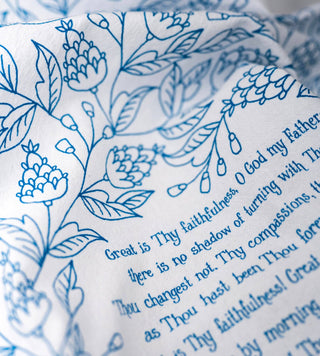 Great is Thy faithfulness, O God my Father
there is no shadow of turning with
Thou changest not, Thy compassions,
as Thou hast been Thou
is Thy faithfulness! Great
by morning